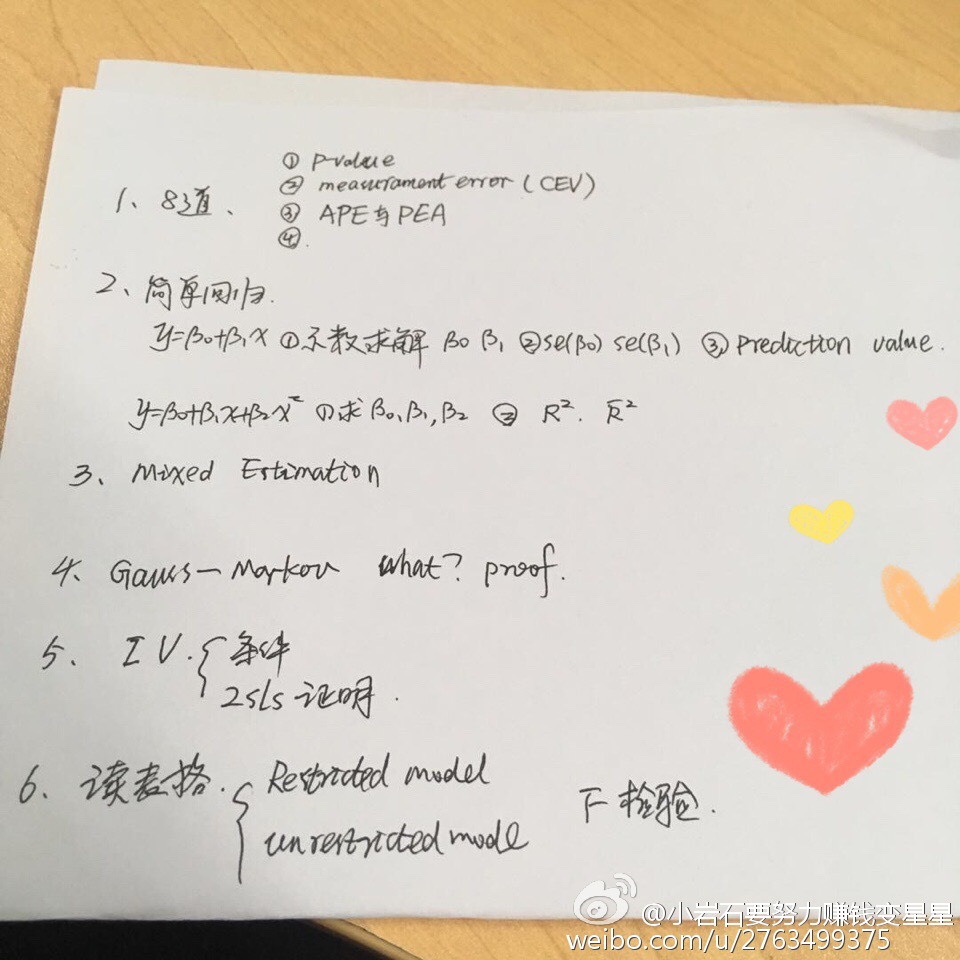 ① P-value
1、8道、 ② measurament error (CEV)
③ APE与PEA
④.
2、简单回归.
y=β0+β1x ①系数求解 β0 β1 ②se(β0) se(β1) ③ prediction value.
y=β0+β1x+β2x² ①求 β0,β1,β2 ② R². R̄²
3、Mixed Estimation
4、Gauss-Markov what? proof.
5、IV. { 条件
2sls 证明.
6、读表格. { Restricted model
unrestricted model F 检验.
@小岩石要努力赚钱变星星
weibo.com/u/2763499375